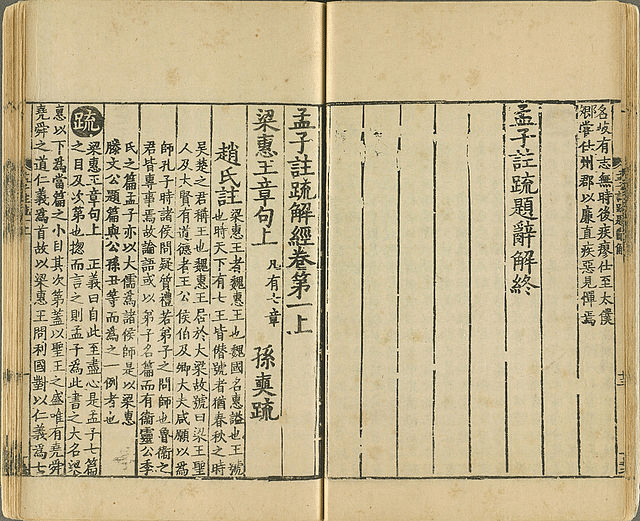 名岐有志無時後疾瘳仕至太僕
卿嘗仕州郡以廉直疾惡見憚焉
孟子註疏題辭解終
孟子註疏解經卷第一上
梁惠王章句上 凡有七章 孫奭疏
趙氏註 梁惠王者魏惠王也魏國名惠謚也王號
也時天下有七王皆僭號者猶春秋之時
吳楚之君稱王也魏惠王居於大梁故號曰梁王聖
人及大賢有道德者王公侯伯及卿大夫咸願以爲
師孔子時諸侯問疑質禮若弟子之問師也魯衞之
君皆專事焉故論語或以弟子名篇而有衞靈公季
氏之篇孟子亦以大儒爲諸侯師是以梁惠
滕文公題篇與公孫丑等而爲之一例者也
疏 梁惠王章句上 正義曰自此至盡心是孟子七篇
之目及次第也揔而言之則孟子爲此書之大名梁
惠以下爲當篇之小目其次第蓋以聖王之盛唯有堯舜
堯舜之道仁義爲首故以梁惠王問利國對以仁義爲七